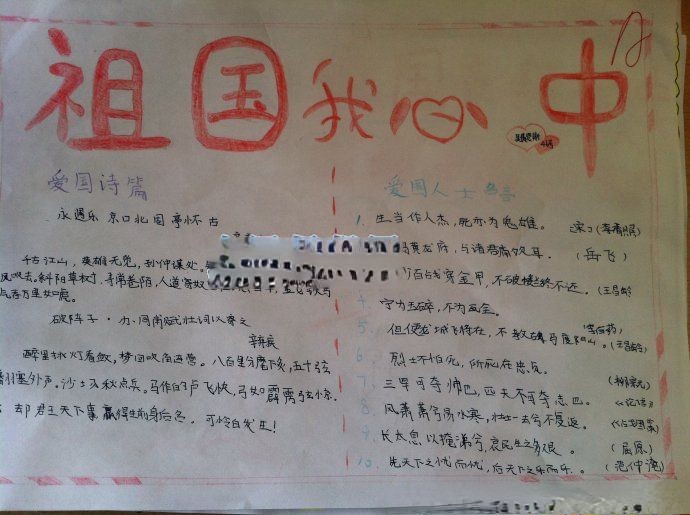 祖国我心中
爱国诗篇
永遇乐 京口北固亭怀古
千古江山，英雄无觅，孙仲谋处。
风吹去。斜阳草树，寻常巷陌，人道寄奴
万里如虎。
破阵子·为同甫赋壮词以寄之
辛弃疾
醉里挑灯看剑，梦回吹角连营。八百里分麾下炙，五十弦
翻塞外声。沙土秋点兵。马作的卢飞快，弓如霹雳弦惊。
却君王天下事赢得生前身后名，可怜白发生！
爱国人士名言
1. 生当作人杰，死亦为鬼雄。 宋 (李清照)
黄龙府，与诸君痛饮耳。 (岳飞)
百战穿金甲，不破楼兰终不还。(王昌龄)
4. 宁为玉碎，不为瓦全。
5. 但使龙城飞将在，不教胡马度阴山。(王昌龄)
6. 烈士不怕死，所死在忠贞。
(柳宗元)
7. 三军可夺帅也，匹夫不可夺志也。 《论语》
8. 风萧萧兮易水寒，壮士一去兮不复返。
9. 长太息以掩涕兮，哀民生之多艰。 (屈原)
10. 先天下之忧而忧，后天下之乐而乐。 (范仲淹)